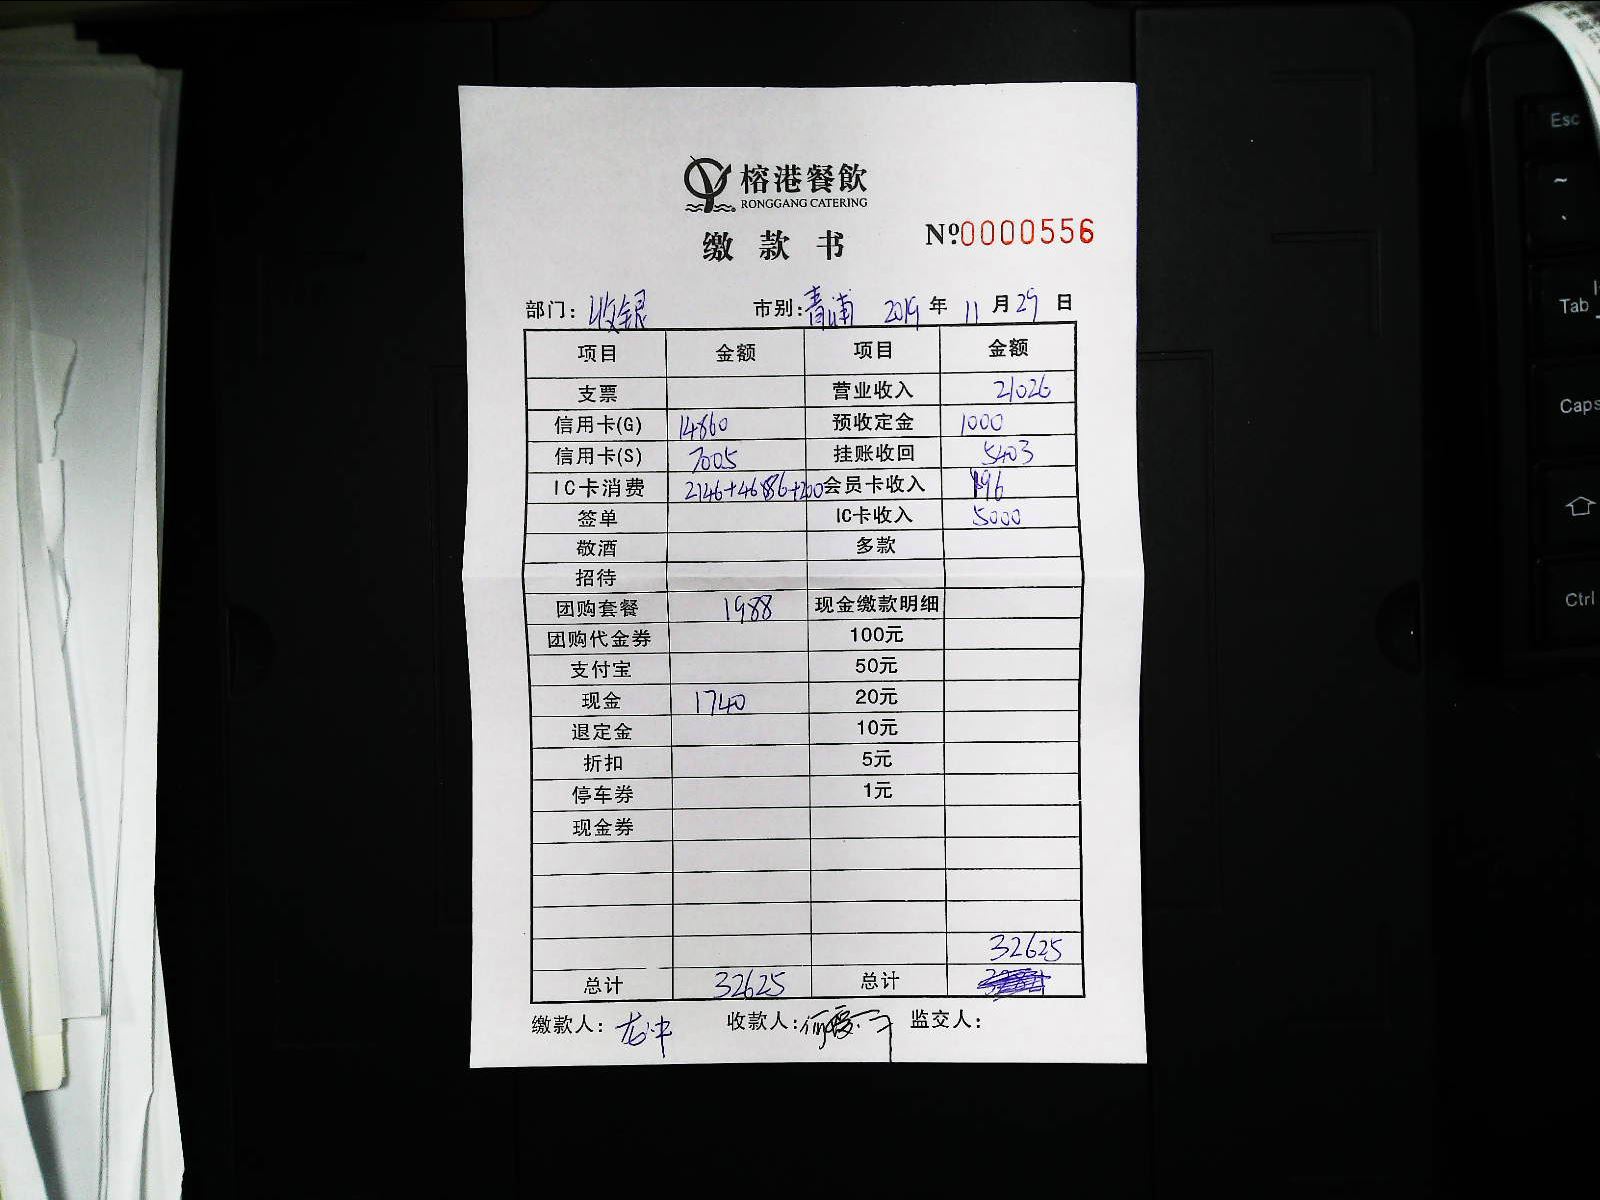 榕港餐飲
RONGGANG CATERING
缴款书 №0000556
部门: 收银 市别: 青浦 2019 年 11 月 29 日
项目 金额 项目 金额
支票 营业收入 21026
信用卡(G) 14860 预收定金 1000
信用卡(S) 7005 挂账收回 5403
IC卡消费 2146+4686+200 会员卡收入 196
签单 IC卡收入 5000
敬酒 多款
招待
团购套餐 1988 现金缴款明细
团购代金券 100元
支付宝 50元
现金 1740 20元
退定金 10元
折扣 5元
停车券 1元
现金券
32625
总计 32625 总计
缴款人: 收款人: 监交人:
Esc
~
Tab
Caps
Ctrl